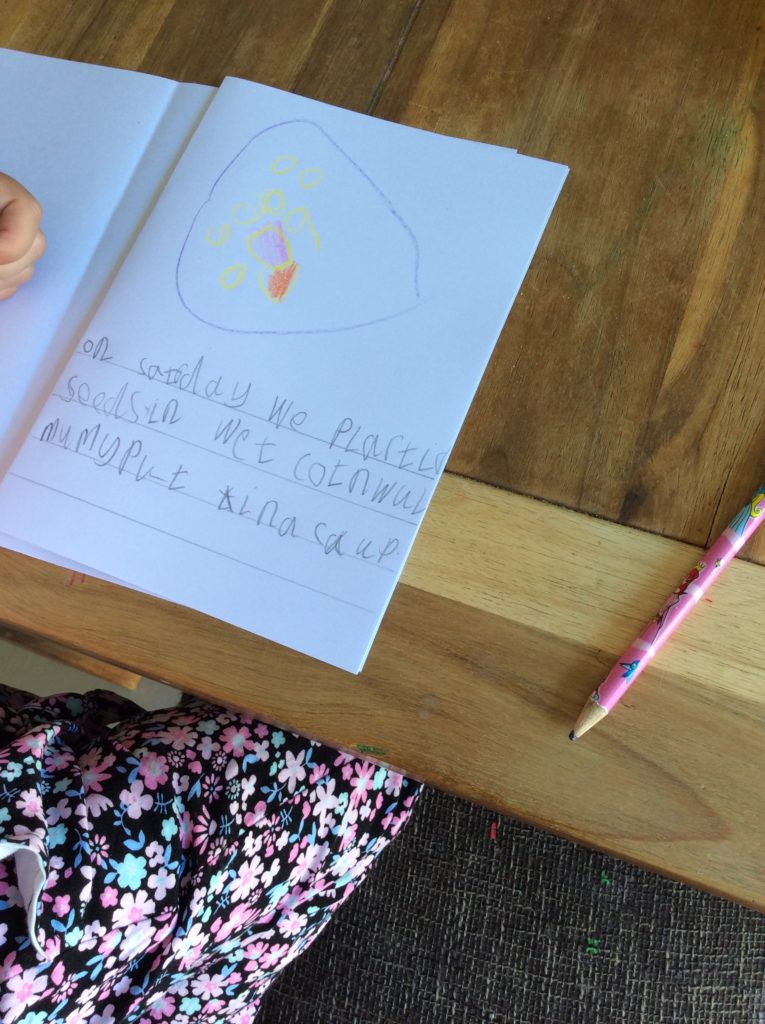 on satday we plartid
seeds in wet cotnwul
mumy put it in a caup